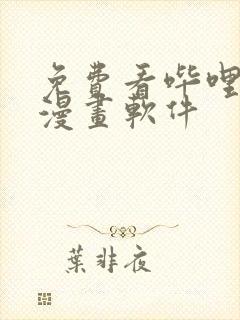 免費看哔哩
漫畫軟件
葉非夜